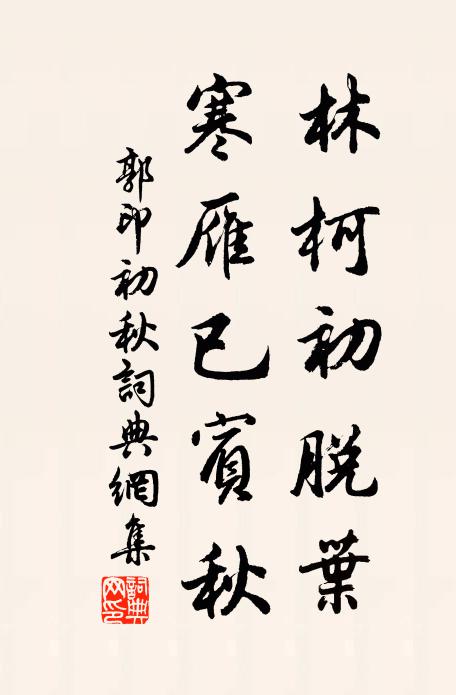 林柯初脱葉
寒雁已賓秋
郭印初秋詞典網集
詞典網印